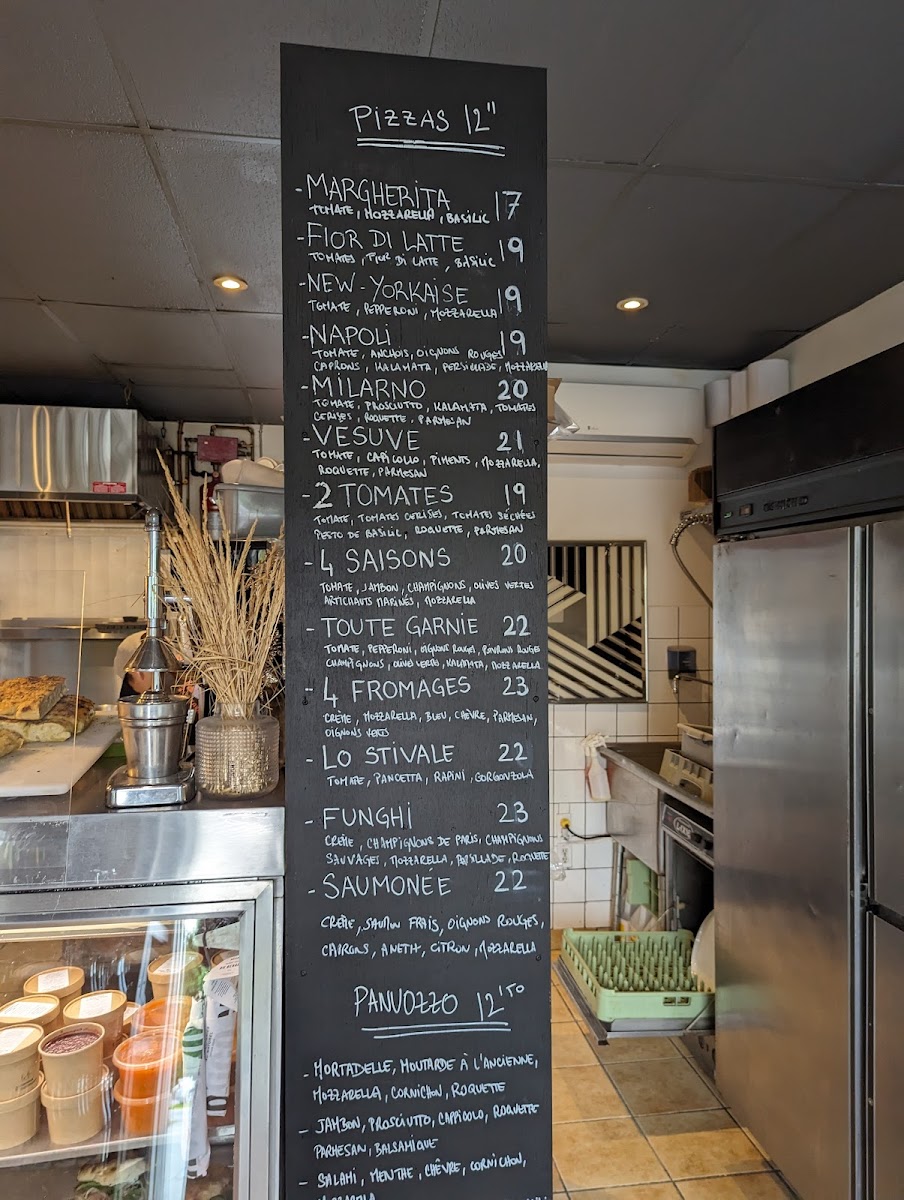 PIZZAS 12"
- MARGHERITA 17
TOMATE, MOZZARELLA, BASILIC
- FIOR DI LATTE 19
TOMATES, FIOR DI LATTE, BASILIC
- NEW-YORKAISE 19
TOMATE, PEPPERONI, MOZZARELLA
- NAPOLI 19
TOMATE, ANCHOIS, OIGNONS ROUGES
CAPRONS, KALAMATA, PERSILLADE, MOZZARELLA
- MILARNO 20
TOMATE, PROSCIUTTO, KALAMATA, TOMATES
CERISES, ROQUETTE, PARMESAN
- VESUVE 21
TOMATE, CAPICOLLO, PIMENTS, MOZZARELLA,
ROQUETTE, PARMESAN
- 2 TOMATES 19
TOMATE, TOMATES CERISES, TOMATES SÉCHÉES
PESTO DE BASILIC, ROQUETTE, PARMESAN
- 4 SAISONS 20
TOMATE, JAMBON, CHAMPIGNONS, OLIVES VERTES
ARTICHAUTS MARINÉS, MOZZARELLA
- TOUTE GARNIE 22
TOMATE, PEPPERONI, OIGNONS ROUGES, POIVRONS ROUGES
CHAMPIGNONS, OLIVES VERTES, KALAMATA, MOZZARELLA
- 4 FROMAGES 23
CRÈME, MOZZARELLA, BLEU, CHÈVRE, PARMESAN,
OIGNONS VERTS
- LO STIVALE 22
TOMATE, PANCETTA, RAPINI, GORGONZOLA
- FUNGHI 23
CRÈME, CHAMPIGNONS DE PARIS, CHAMPIGNONS
SAUVAGES, MOZZARELLA, ROQUETTE
- SAUMONÉE 22
CRÈME, SAUMON FRAIS, OIGNONS ROUGES,
CAPRONS, ANETH, CITRON, MOZZARELLA
PANUOZZO 12'50
- MORTADELLE, MOUTARDE À L'ANCIENNE,
MOZZARELLA, CORNICHON, ROQUETTE
- JAMBON, PROSCIUTTO, CAPPICOLO, ROQUETTE
PARMESAN, BALSAMIQUE
- SALAMI, MENTHE, CHÈVRE, CORNICHON,
MOZZARELLA